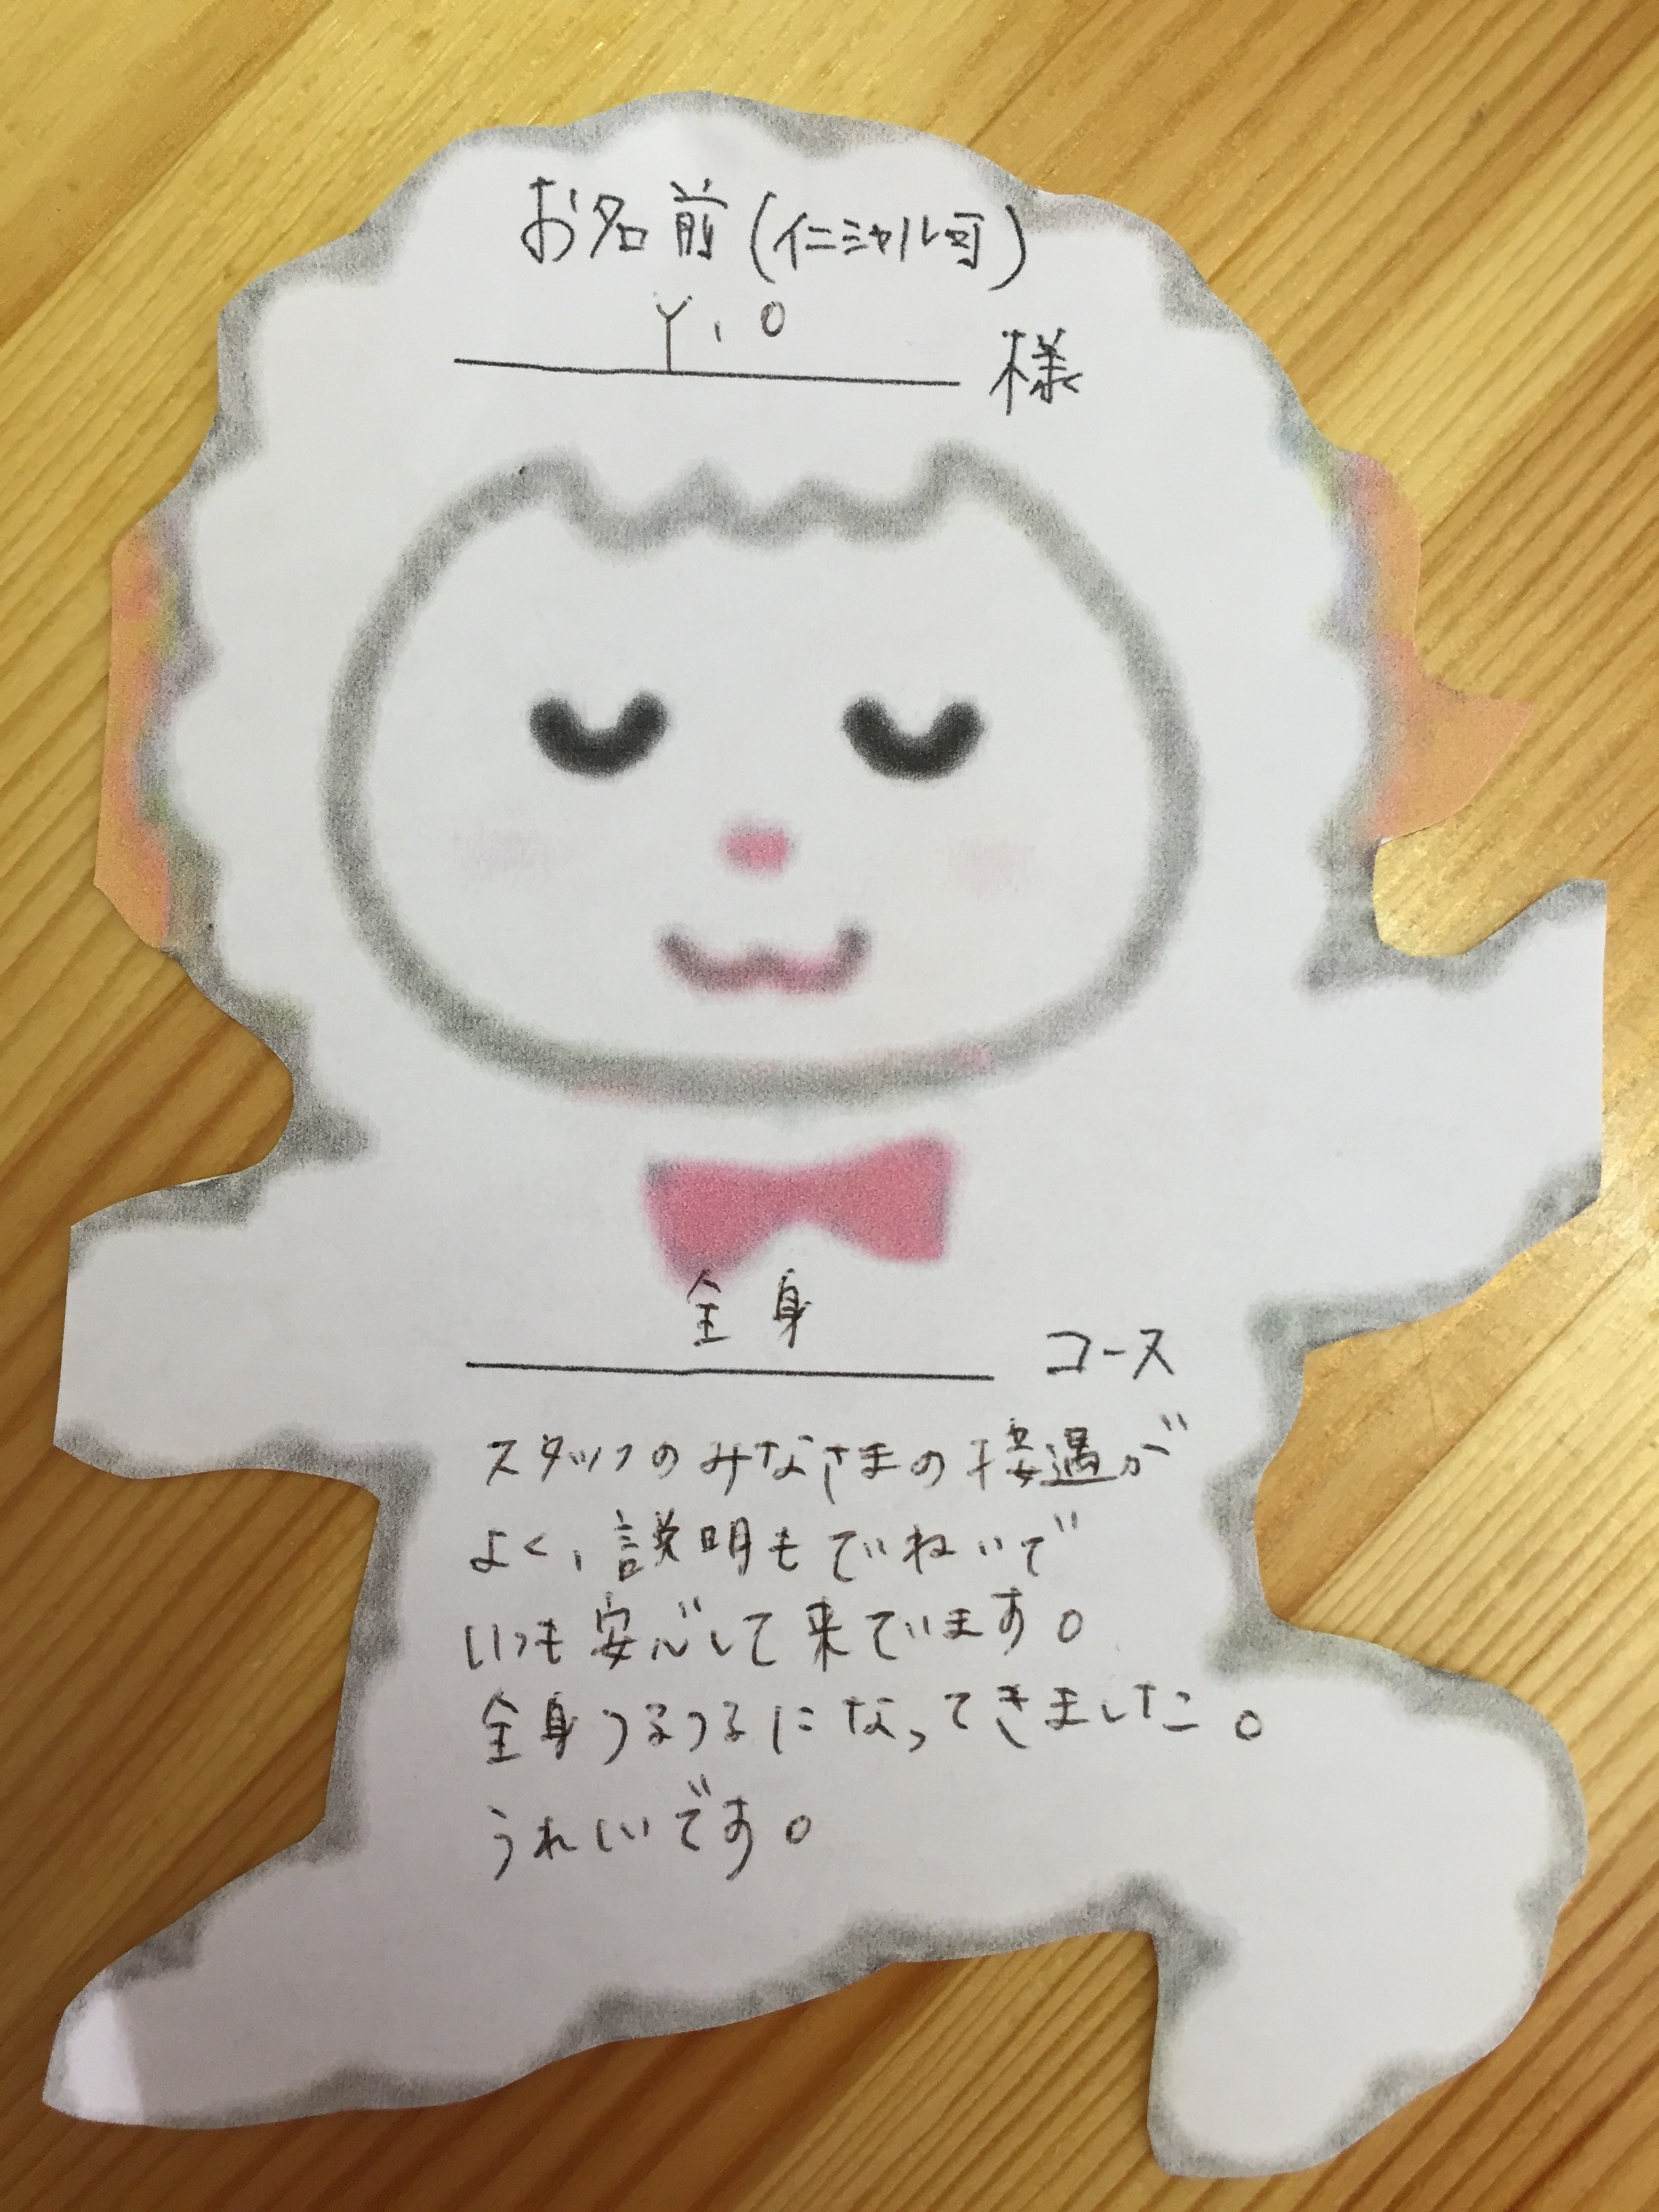 お名前(イニシャル可)
Y.O 様
全身 コース
スタッフのみなさまの接遇が
よく、説明もていねいで
いつも安心して来ています。
全身つるつるになってきました。
うれしいです。